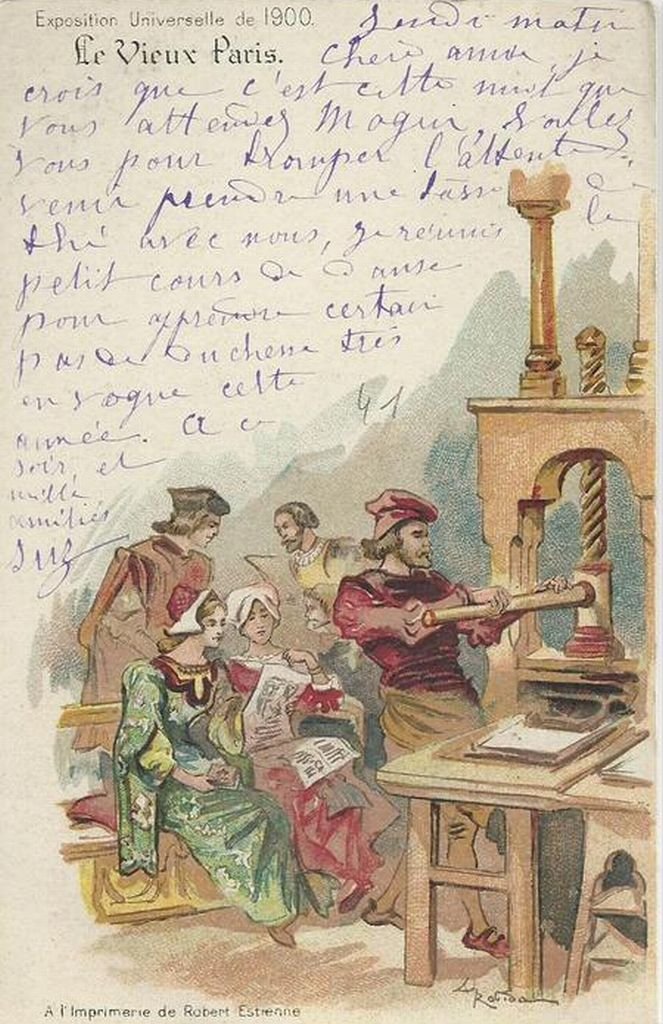 Exposition Universelle de 1900.
Le Vieux Paris.
matin
chère amie, je
crois que c'est cette nuit que
vous attendez Voulez
vous pour tromper l'attente,
venir prendre une tasse de
thé avec nous, je réunis le
petit cours de danse
pour apprendre certain
pas de très
en vogue cette
année. a ce
soir, et
mille
amitiés
Suz
41
A. Robida
A l'Imprimerie de Robert Estienne